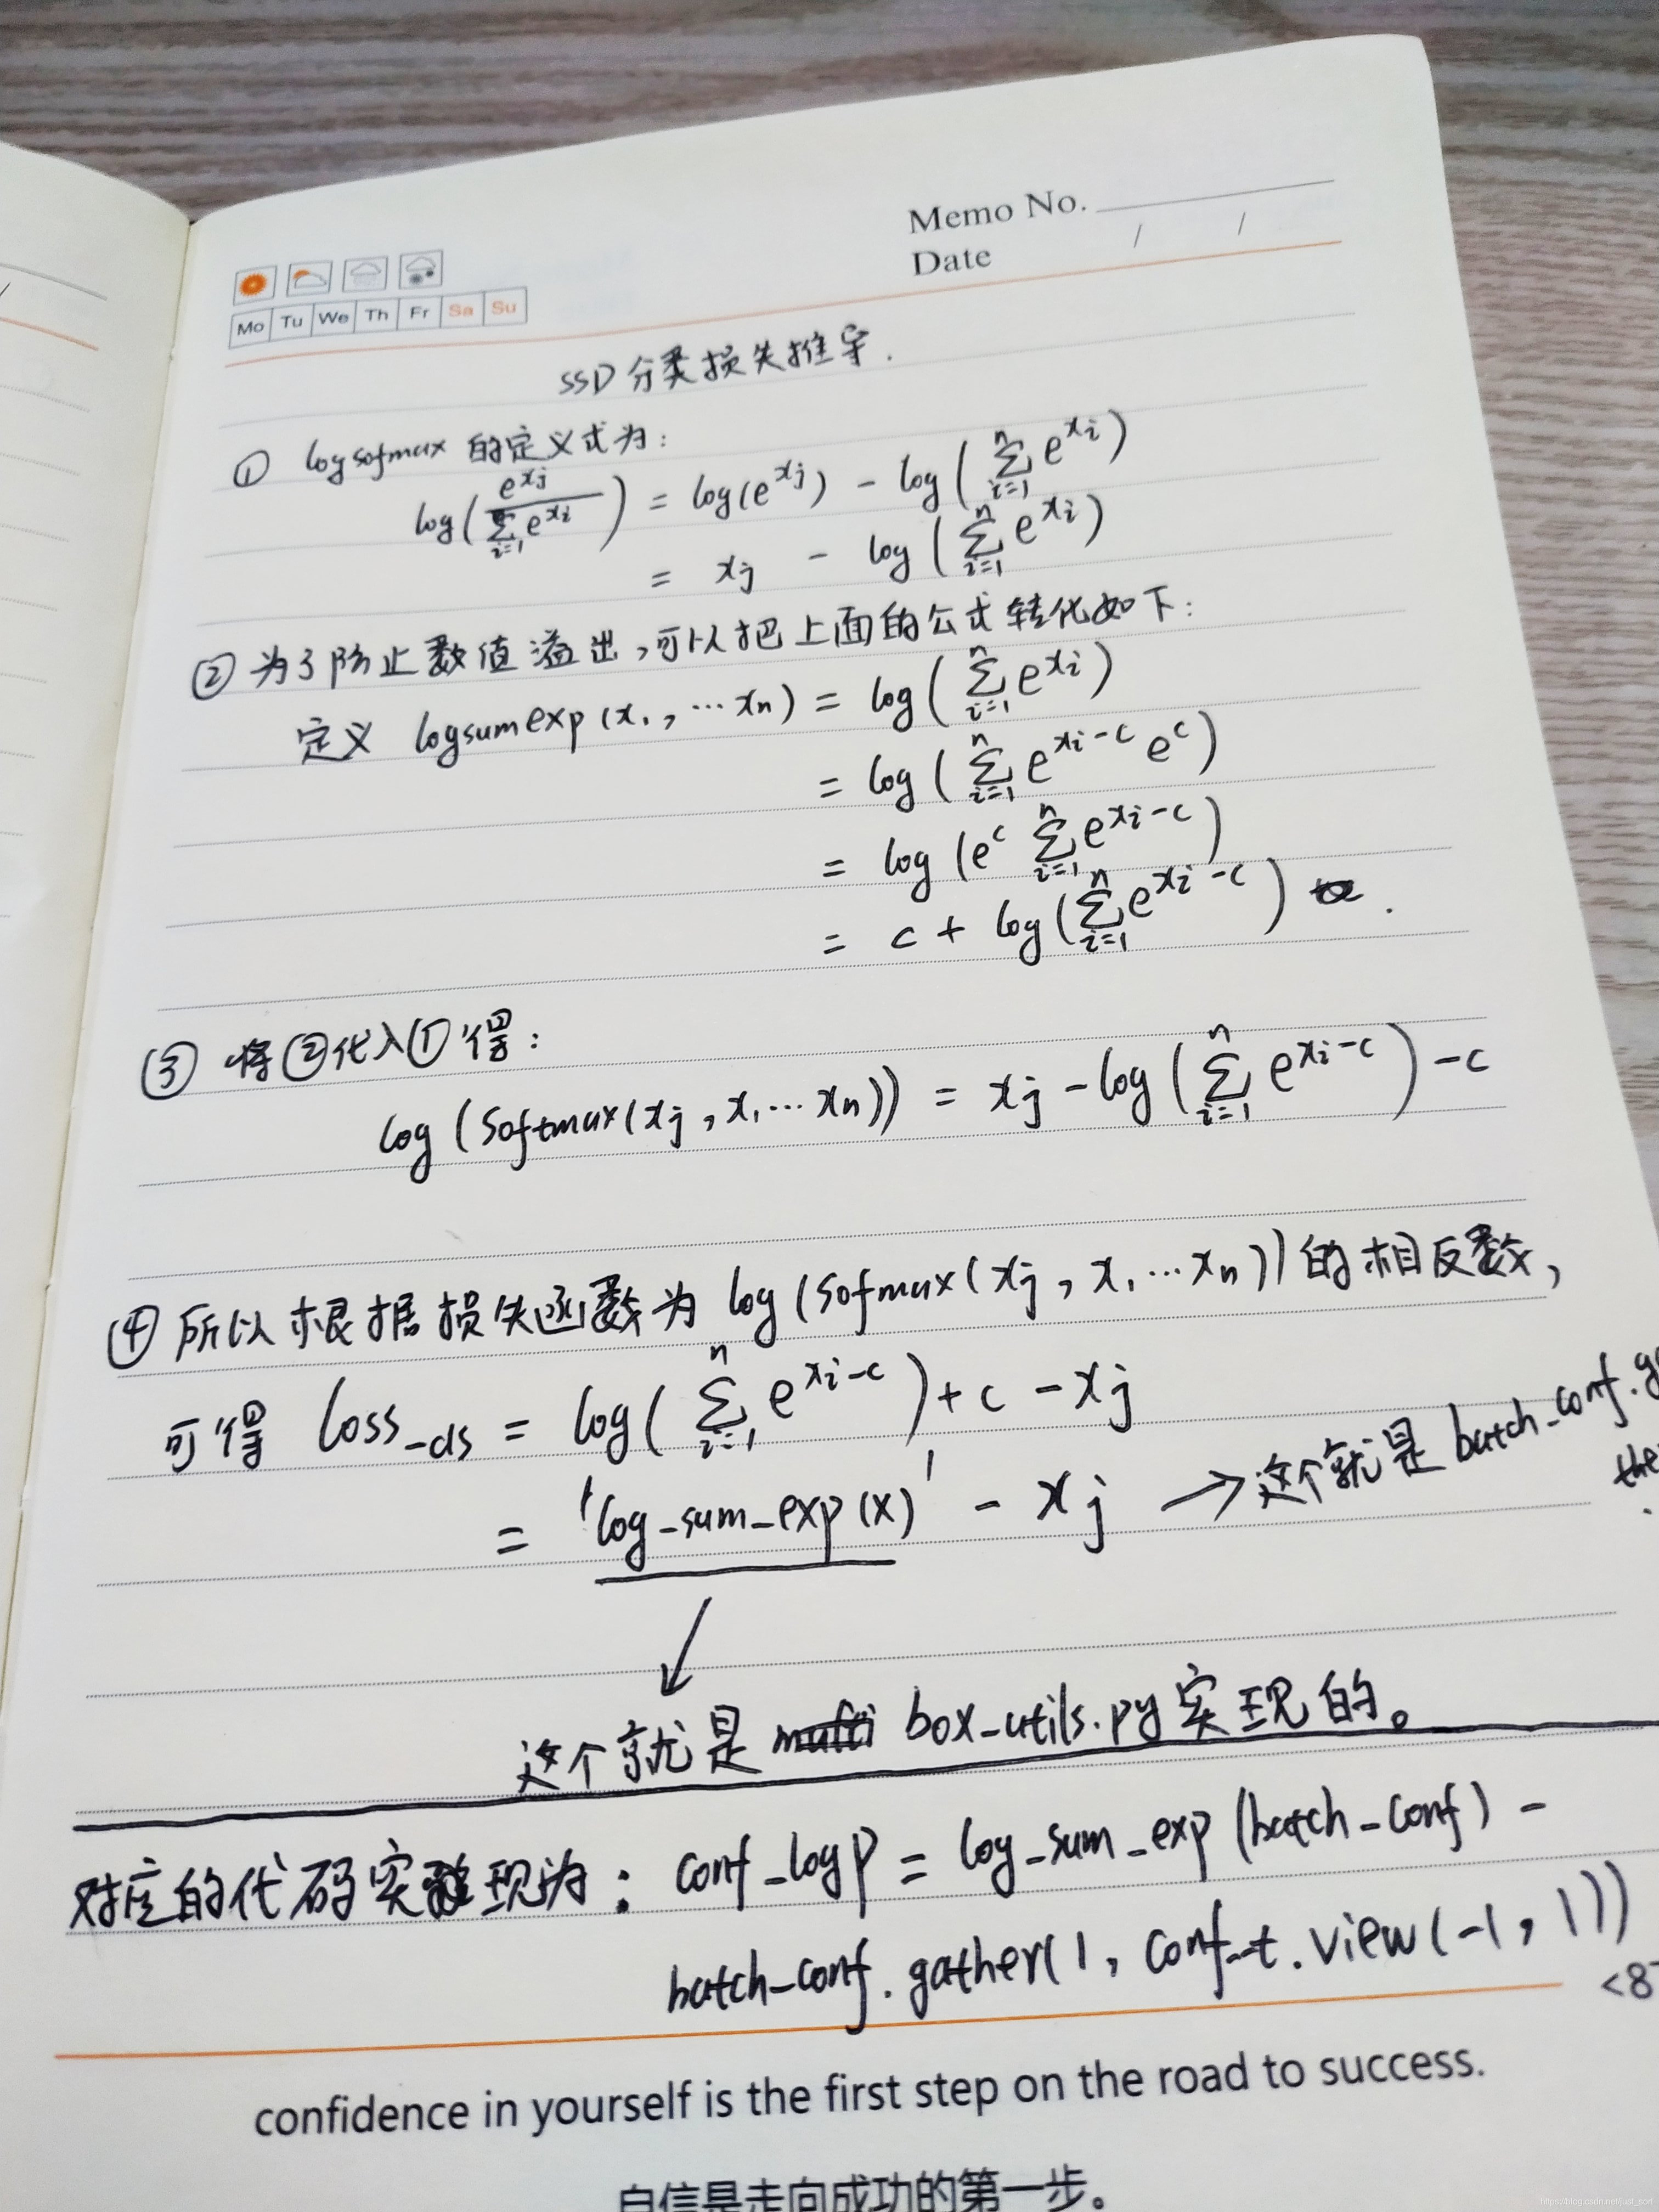 Memo No.
Date / /
Mo Tu We Th Fr Sa Su
SSD分类损失推导.
① logsofmax 的定义式为:
log(e^{xj} / Σ_{i=1} e^{xi}) = log(e^{xj}) - log(Σ_{i=1}^{n} e^{xi})
= xj - log(Σ_{i=1}^{n} e^{xi})
② 为了防止数值溢出,可以把上面的公式转化如下:
定义 logsumexp(x1,…xn) = log(Σ_{i=1}^{n} e^{xi})
= log(Σ_{i=1}^{n} e^{xi-c} e^c)
= log(e^c Σ_{i=1}^{n} e^{xi-c})
= c + log(Σ_{i=1}^{n} e^{xi-c}) .
③ 将②代入①得:
log(softmax(xj,x1…xn)) = xj - log(Σ_{i=1}^{n} e^{xi-c}) - c
④ 所以根据损失函数为 log(sofmax(xj,x1…xn))的相反数,
可得 loss_cls = log(Σ_{i=1}^{n} e^{xi-c}) + c - xj
= 'log_sum_exp(x)' - xj → 这个就是 batch_conf.g
the
这个就是 box_utils.py实现的。
对应的代码实现为: conf_logP = log_sum_exp(batch_conf) -
batch_conf.gather(1, conf_t.view(-1,1))
<8
confidence in yourself is the first step on the road to success.
自信是走向成功的第一步。